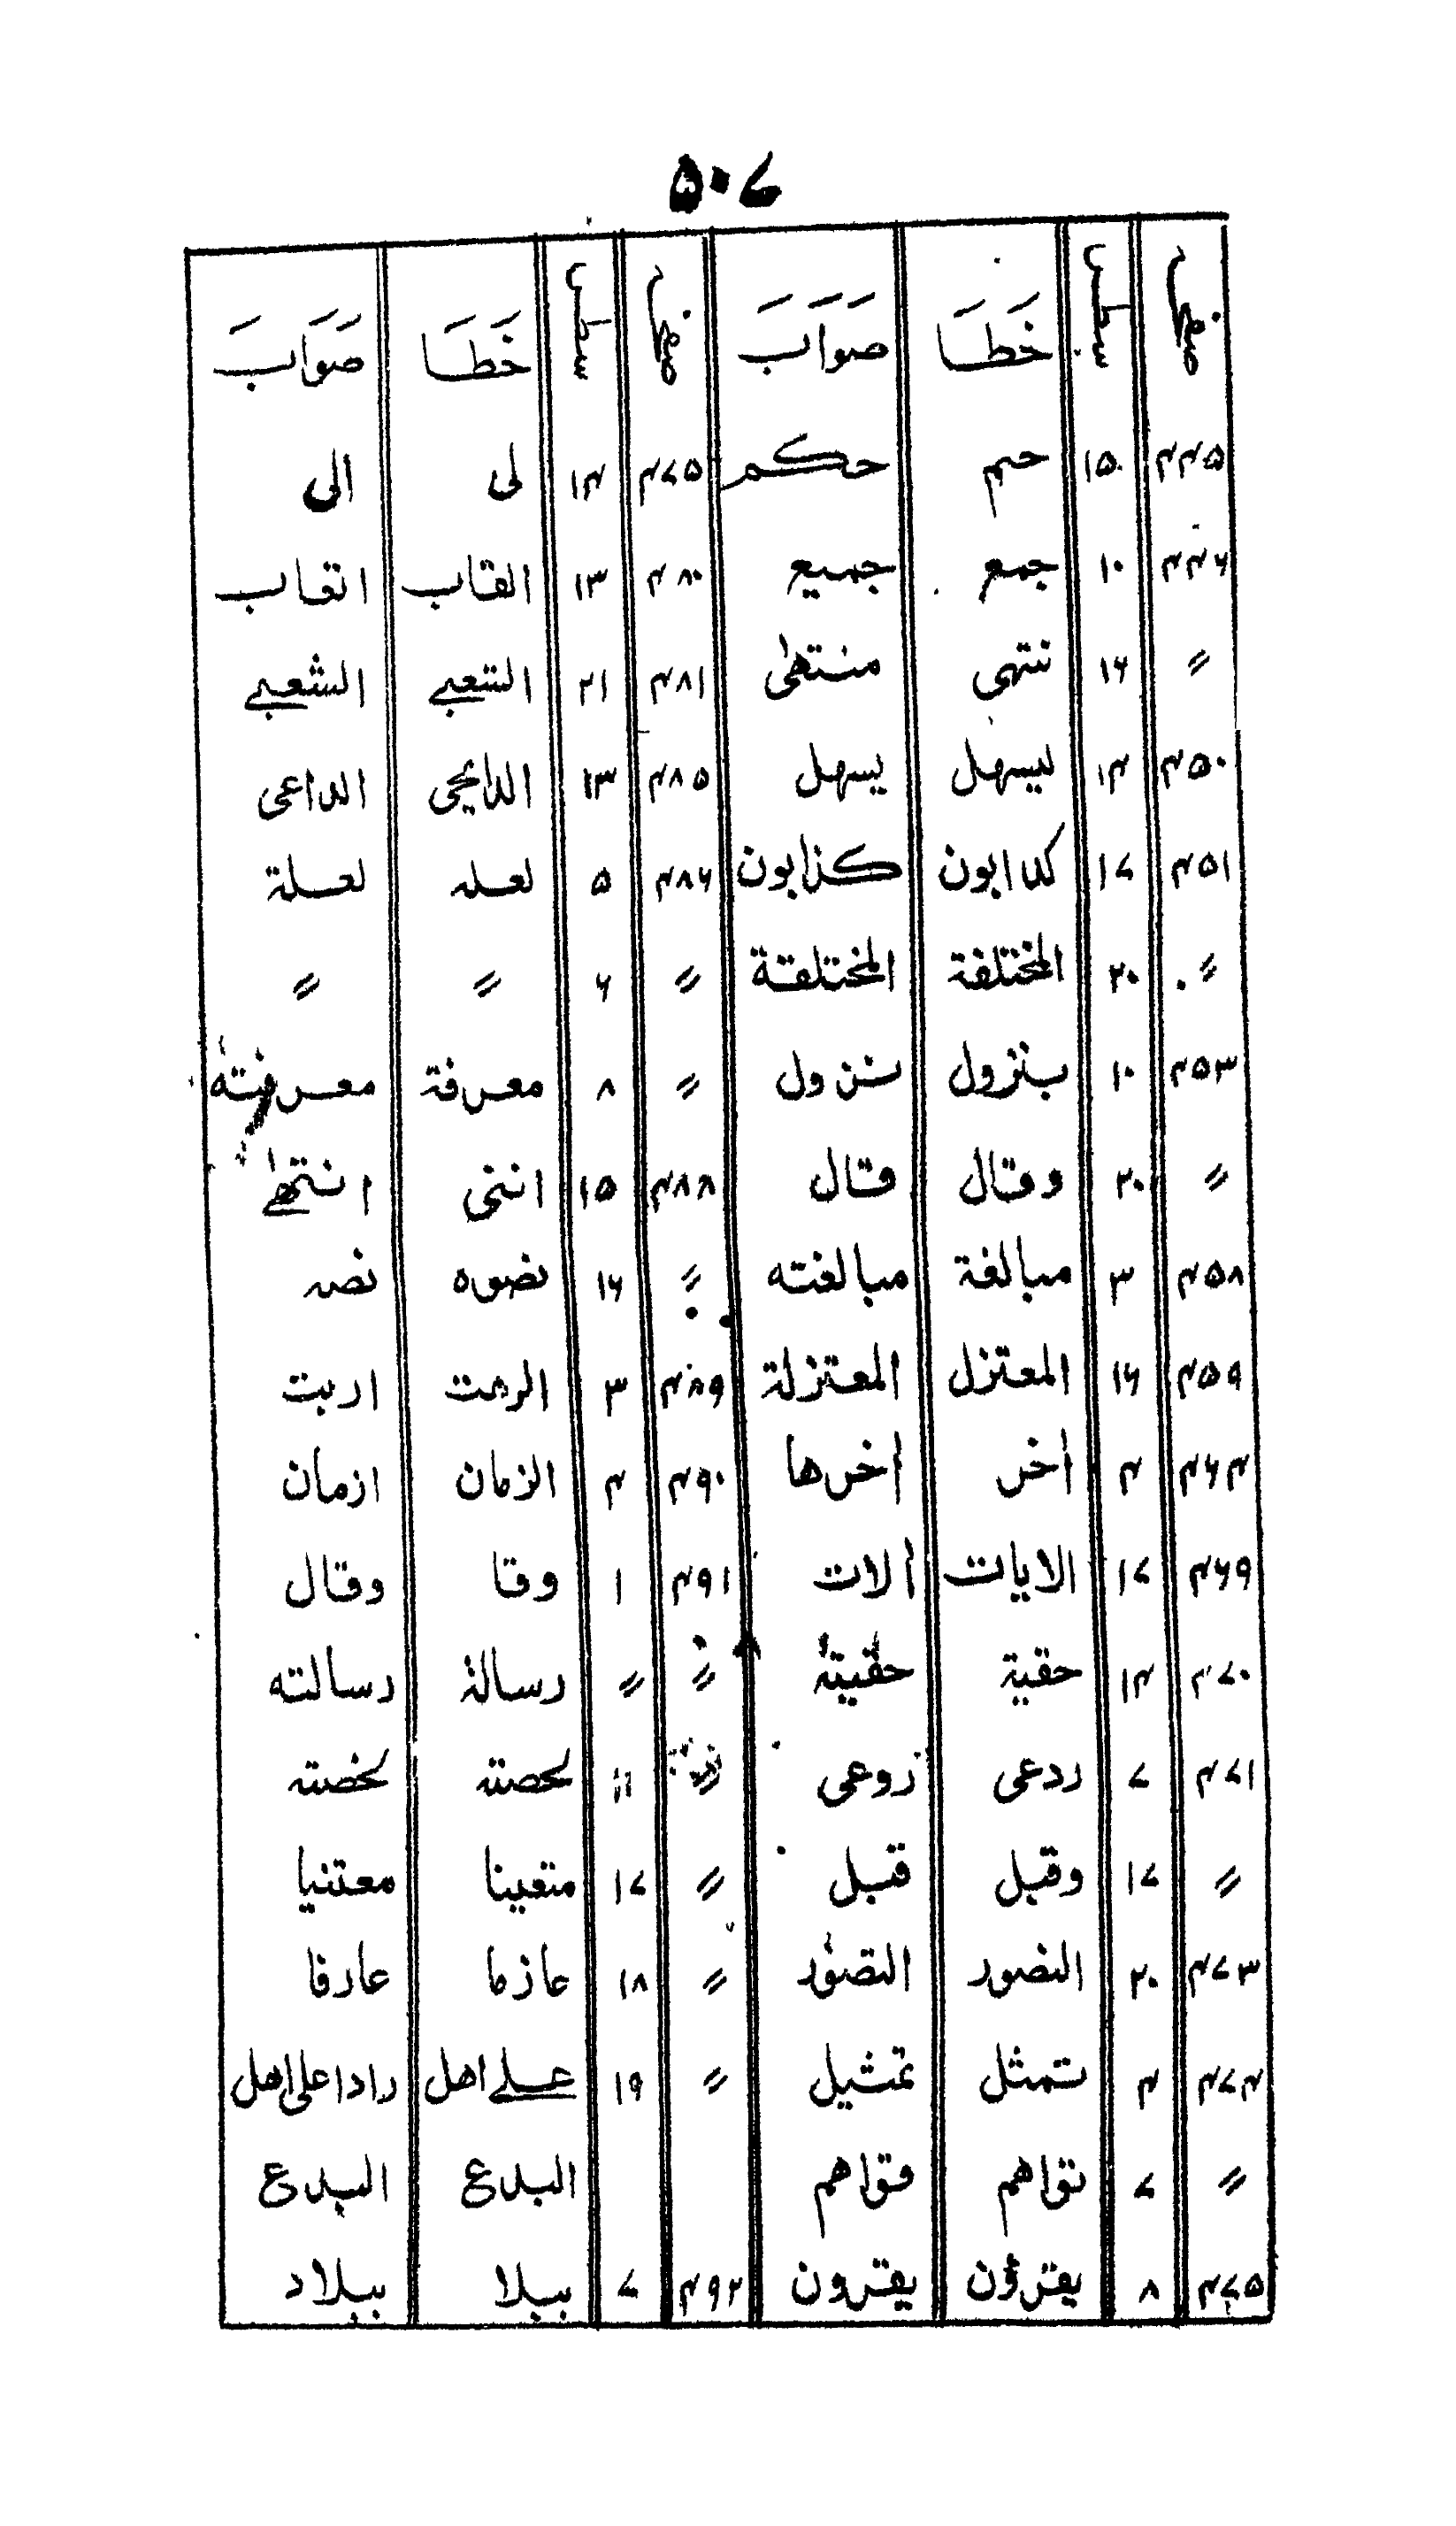 ۵۰۷
صفحہ سطر خَطَا صَوَابَ صفحہ سطر خَطَا صَوَابَ
۴۴۵ ۱۵ حم حکم ۴۷۵ ۱۴ لی الی
۴۴۶ ۱۰ جمع جمیع ۴۸۰ ۱۳ القاب اتعاب
〃 ۱۶ نتہی منتھیٰ ۴۸۱ ۲۱ التعبے الشعبے
۴۵۰ ۱۴ لیسهل یسهل ۴۸۵ ۱۳ الداعی
۴۵۱ ۱۷ کدابون کذابون ۴۸۶ ۵ لعله لعلة
〃 ۲۰ المختلفة المختلقة 〃 ۶ 〃 〃
۴۵۳ ۱۰ بنزول نزول 〃 ۸ معرفة معرفته
〃 ۲۰ وقال قال ۴۸۸ ۱۵ انتهے
۴۵۸ ۳ مبالغة مبالغته 〃 ۱۶ نضوه نصه
۴۵۹ ۱۶ المعتزل المعتزلة ۴۸۹ ۳ اربت
۴۶۴ ۴ أخر أخرها ۴۹۰ ۴ الزمان ازمان
۴۶۹ ۱۷ الایات ألات ۴۹۱ ۱ وقا وقال
۴۷۰ ۱۴ حقیة حقیتهٗ 〃 〃 رسالة رسالته
۴۷۱ ۷ ردعی روعی 〃 ۱۱
〃 ۱۷ وقبل قبل 〃 ۱۷ متعینا معتنیا
۴۷۳ ۲۰ النضور التصوّر 〃 ۱۸ عازما عارفا
۴۷۴ ۴ تمثل تمثیل 〃 ۱۹ علے اهل راداعلی اهل
〃 ۷ نقواهم فقواهم البدع البدع
۴۷۵ ۸ یقرؤن یقرون ۴۹۲ ۷ ببلا ببلاد